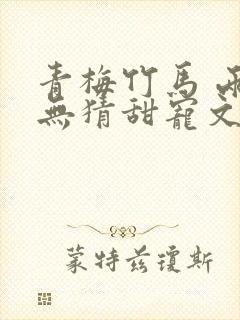 青梅竹馬 兩
無猜甜寵文
蒙特茲瓊斯